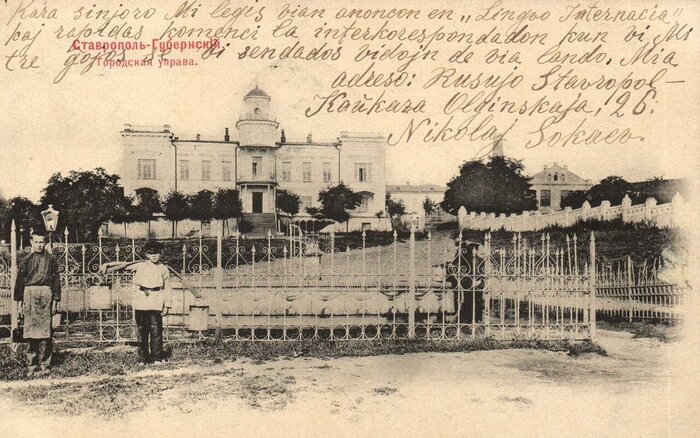 Kara sinjoro Mi legis vian anoncon en „Lingvo Internacia"
kaj rapidas komenci la interkorespondadon kun vi Mi
Ставрополь-Губернскій.
tre ĝojos, se vi sendados vidojn de via lando. Mia
Городская управа.
adreso: Rusujo Stavropol-
Kaŭkaza Olginskaja, 26.
Nikolaj Sokaev